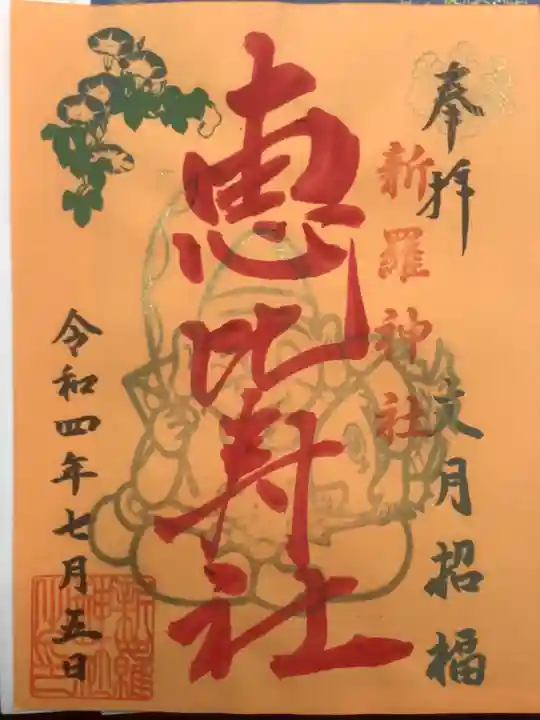 奉拝
文月招福
新羅神社
恵比寿社
令和四年七月五日
新羅
神社